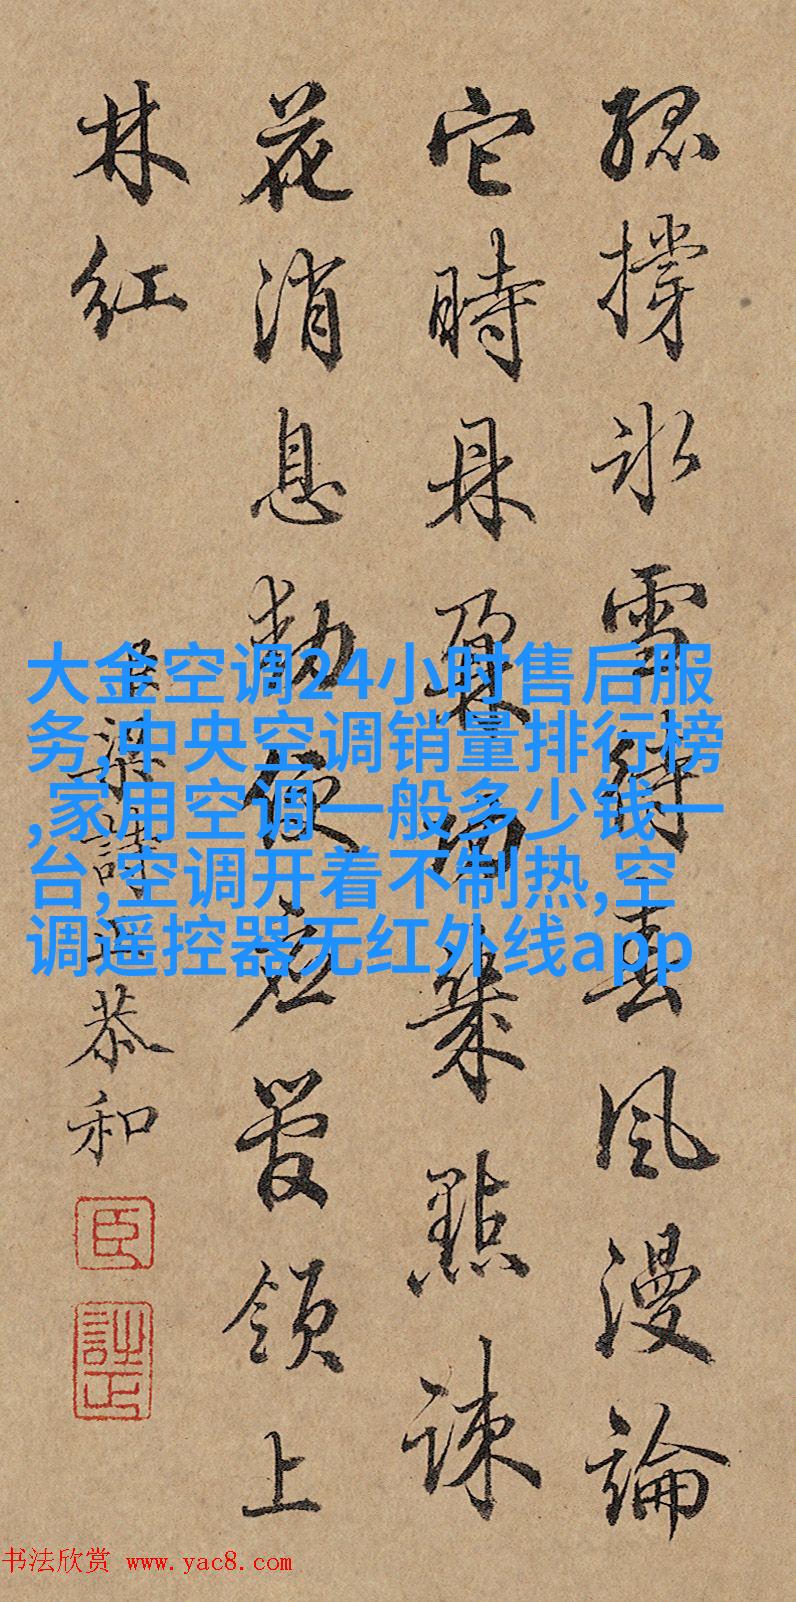 孤撐冰雪風漫論
它時幾點疎
花消息動便應管領上
林紅
臣梁詩正恭和
臣
詩正
大金空调24小时售后服
务,中央空调销量排行榜
,家用空调一般多少钱一
台,空调开着不制热,空
调遥控器无红外线app
书法欣赏 www.yac8.com